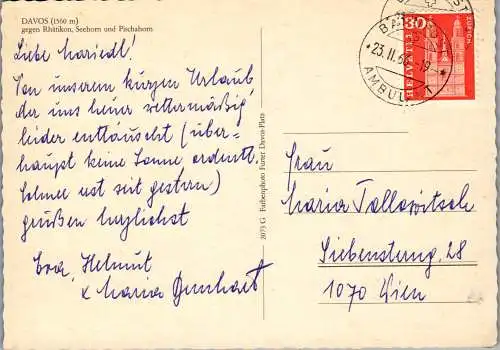 DAVOS (1560 m)
gegen Rhätikon, Seehorn und Pischahorn
Liebe Mariedl!
Von unserem kurzen Urlaub,
der uns heuer wettermäßig
leider enttäuscht (über-
haupt keine Sonne ordentl.
Schnee erst seit gestern)
grüßen herzlichst
Eva, Helmut
x Maria
2073 G Farbenphoto Furter Davos-Platz
AMBULANT
23.II.6 -19
HELVETIA
30
ZÜRICH
Frau
Maria
Siebensterng. 28
1070 Wien